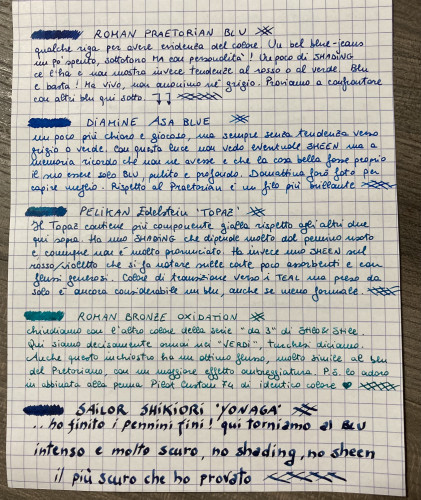 ROMAN PRAETORIAN BLU
qualche riga per avere evidenza del colore. Un bel blue-jeans
un po' spento, sottotono MA con personalità! Un poco di SHADING
ce l'ha e non mostra invece tendenze al rosso o al verde. Blu
e basta! Ma vivo, non anonimo nè grigio. Proviamo a confrontare
con altri blu qui sotto. ↓↓
DIAMINE ASA BLUE
un poco più chiaro e giocoso, ma sempre senza tendenza verso
grigio o verde. Con questa luce non vedo eventuale SHEEN ma a
memoria ricordo che non ne avesse e che la cosa bella fosse proprio
il suo essere solo BLU, pulito e profondo. Domattina farò foto per
capire meglio. Rispetto al Praetorian è un filo più brillante
PELIKAN Edelstein 'TOPAZ'
Il Topaz contiene più componente gialla rispetto agli altri due
qui sopra. Ha uno SHADING che dipende molto dal pennino usato
e comunque non è molto pronunciato. Ha invece uno SHEEN sul
rosso/violetto che si fa notare sulle carte poco assorbenti e con
flussi generosi. Color di transizione verso i TEAL ma preso da
solo è ancora considerabile un blu, anche se meno formale.
ROMAN BRONZE OXIDATION
chiudiamo con l'altro colore della serie "da 3" di
Qui siamo decisamente ormai nei "VERDI", turchesi diciamo.
Anche questo inchiostro ha un ottimo flusso, molto simile al blu
del Pretoriano, con un maggiore effetto ombreggiatura. P.S. lo adoro
in abbinata alla penna Pilot Custom 74 di identico colore ♥
SAILOR SHIKIORI 'YONAGA'
... ho finito i pennini fini! qui torniamo al BLU
intenso e molto scuro, no shading, no sheen
il più scuro che ho provato